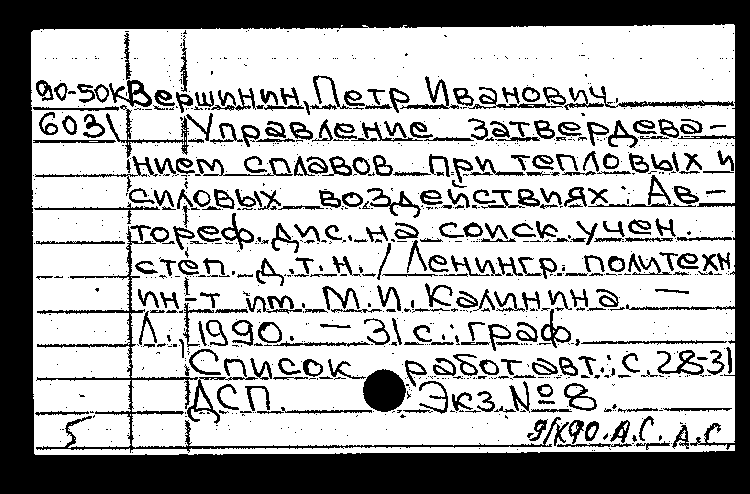 90-50К Вершинин, Петр Иванович.
6031 Управление затвердева-
нием сплавов при тепловых и
силовых воздействиях: Ав-
тореф. дис. на соиск. учен.
степ. д.т.н. / Ленингр. политехн
ин-т им. М.И. Калинина. —
Л., 1990. — 31 с.: граф.
Список работ авт.: с. 28-31
ДСП. Экз. № 8.
5 9/X90. А.С. А.С.